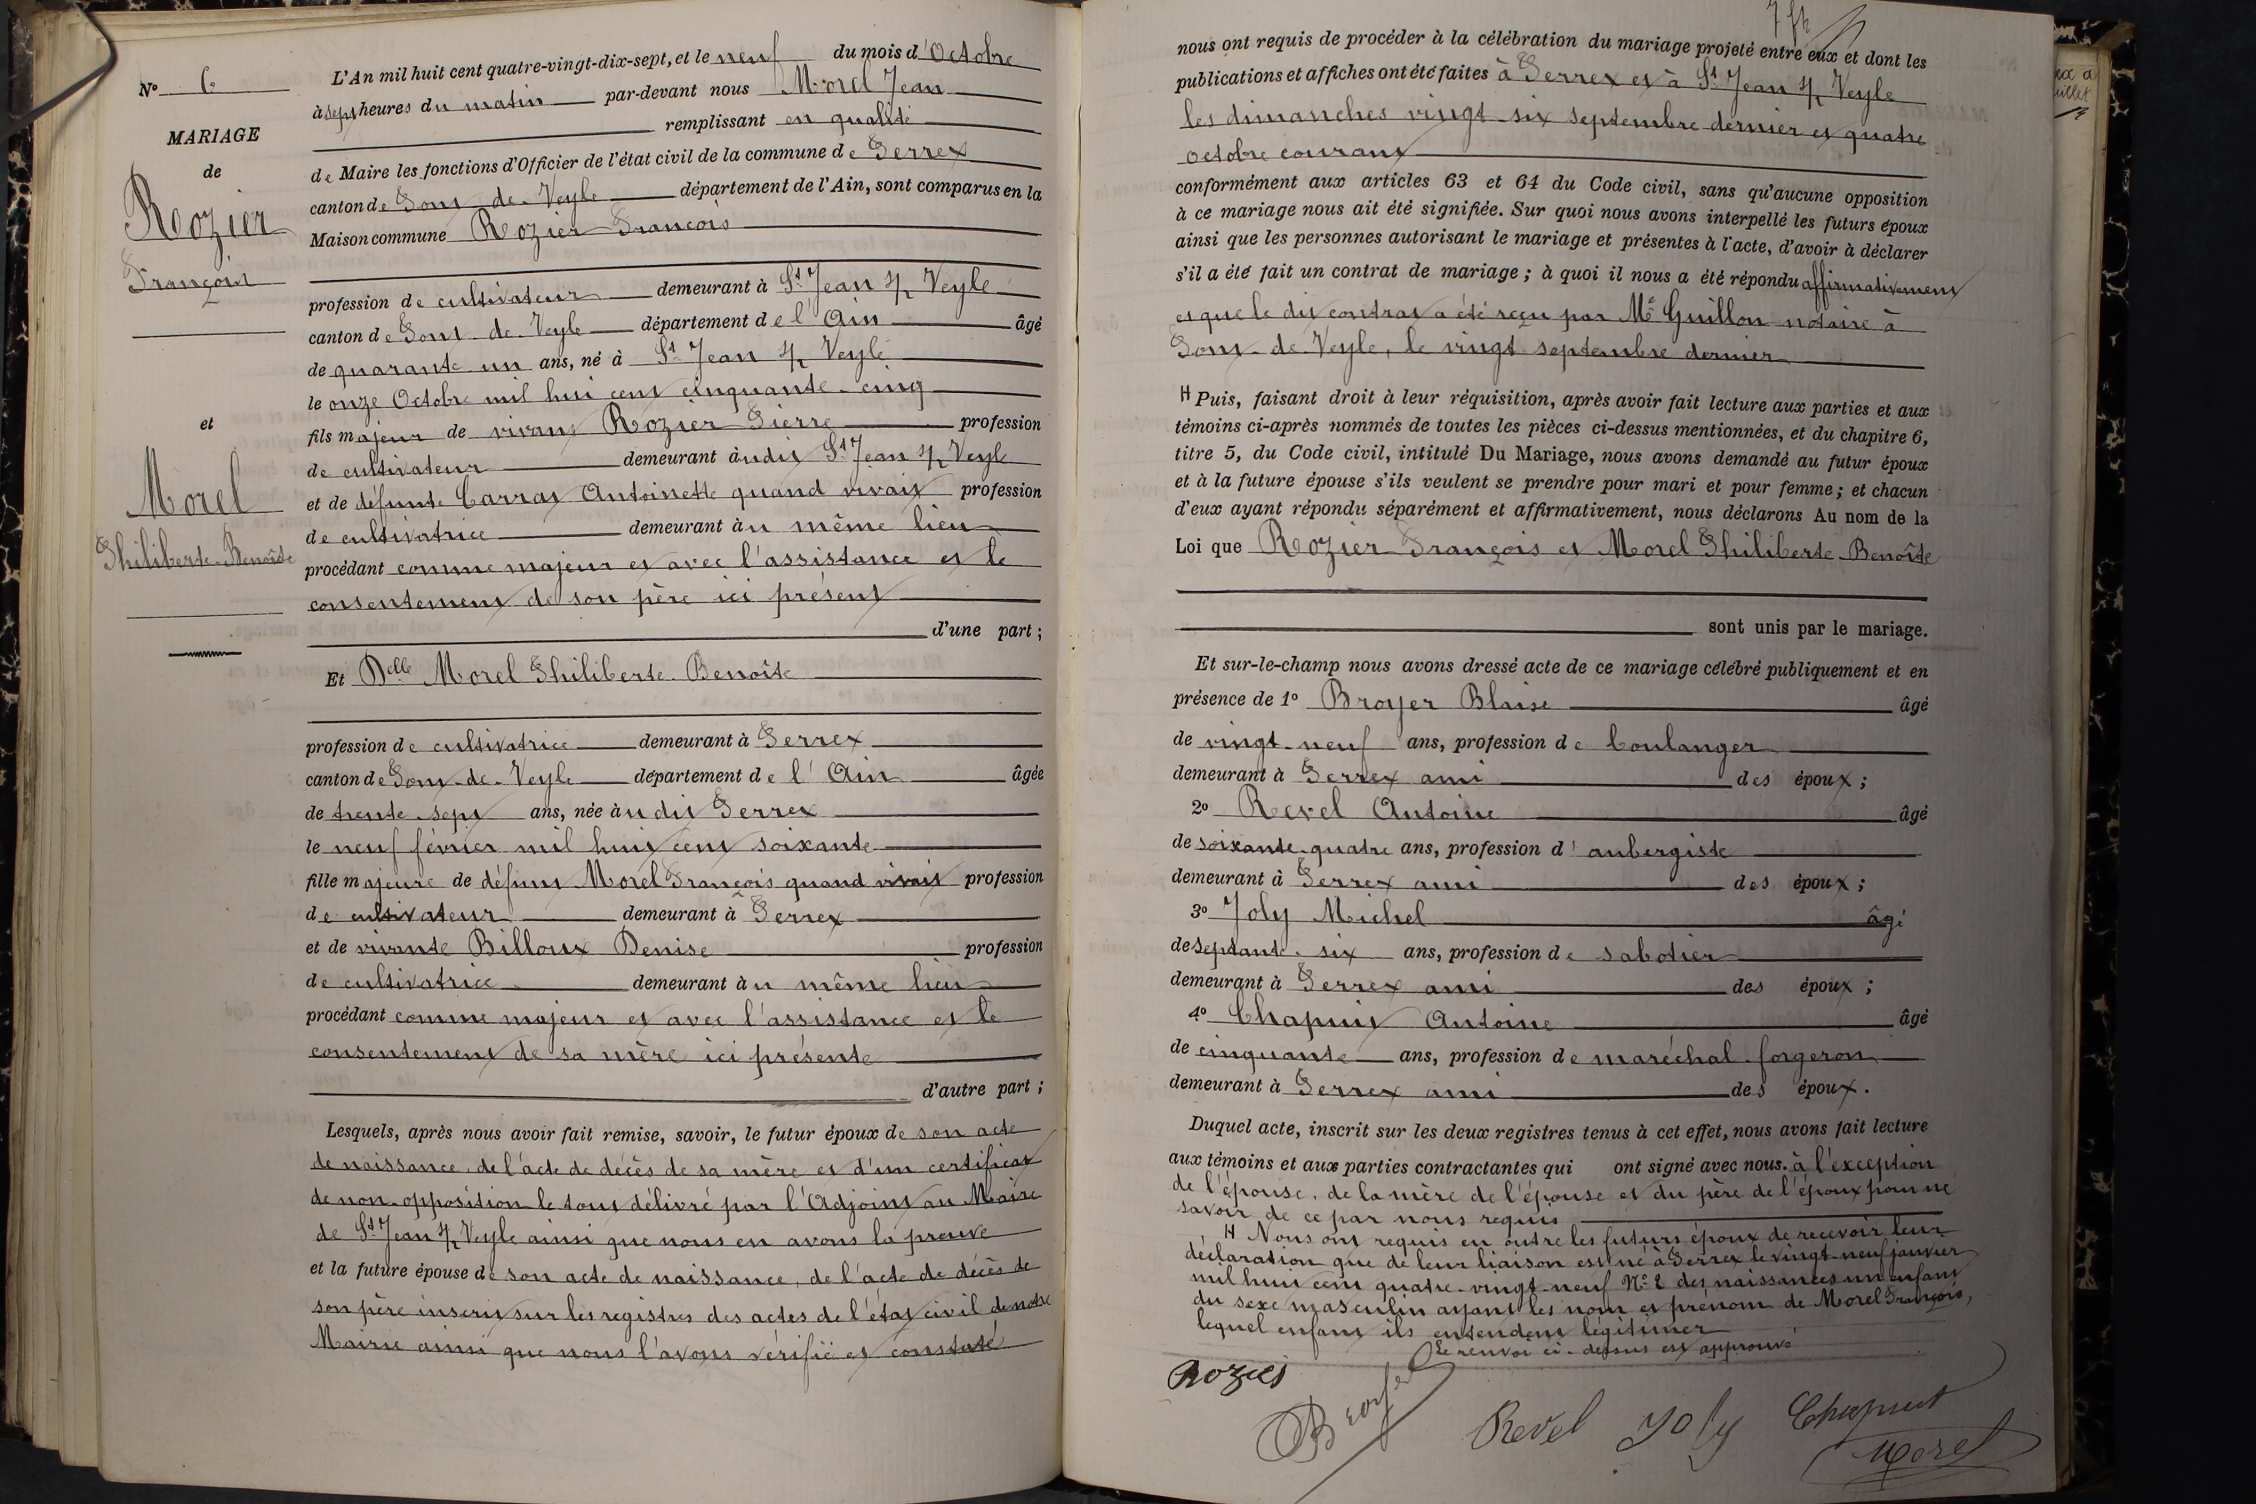 N° 6
MARIAGE
de
Rozier
François
et
Morel
Philiberte-Benoîte
L'An mil huit cent quatre-vingt-dix-sept, et le neuf du mois d'Octobre
à sept heures du matin par-devant nous Morel Jean
remplissant en qualité
de Maire les fonctions d'Officier de l'état civil de la commune de Perrex
canton de Pont-de-Veyle département de l'Ain, sont comparus en la
Maison commune Rozier François
profession de cultivateur demeurant à St Jean s/ Veyle
canton de Pont-de-Veyle département de l'Ain âgé
de quarante un ans, né à St Jean s/ Veyle
le onze Octobre mil huit cent cinquante-cinq
fils majeur de vivant Rozier Pierre profession
de cultivateur demeurant àudit St Jean s/ Veyle
et de défunte Carras Antoinette quand vivait profession
de cultivatrice demeurant àu même lieu
procédant comme majeur et avec l'assistance et le
consentement de son père ici présent
d'une part ;
Et Delle Morel Philiberte-Benoîte
profession de cultivatrice demeurant à Perrex
canton de Pont-de-Veyle département de l'Ain âgée
de trente-sept ans, née àudit Perrex
le neuf février mil huit cent soixante
fille majeure de défunt Morel François quand vivait profession
de cultivateur demeurant à Perrex
et de vivante Billoux Denise profession
de cultivatrice demeurant àu même lieu
procédant comme majeur et avec l'assistance et le
consentement de sa mère ici présente
d'autre part ;
Lesquels, après nous avoir fait remise, savoir, le futur époux de son acte
de naissance, de l'acte de décès de sa mère et d'un certificat
de non-opposition le tout délivré par l'Adjoint au Maire
de St Jean s/ Veyle ainsi que nous en avons la preuve
et la future épouse de son acte de naissance, de l'acte de décès de
son père inscrit sur les registres des actes de l'état civil de notre
Mairie ainsi que nous l'avons vérifié et constaté
nous ont requis de procéder à la célébration du mariage projeté entre eux et dont les
publications et affiches ont été faites à Perrex et à St Jean s/ Veyle
les dimanches vingt-six septembre dernier et quatre
octobre courant
conformément aux articles 63 et 64 du Code civil, sans qu'aucune opposition
à ce mariage nous ait été signifiée. Sur quoi nous avons interpellé les futurs époux
ainsi que les personnes autorisant le mariage et présentes à l'acte, d'avoir à déclarer
s'il a été fait un contrat de mariage ; à quoi il nous a été répondu affirmativement
et que le dit contrat a été reçu par Me Guillon notaire à
Pont-de-Veyle, le vingt septembre dernier
H Puis, faisant droit à leur réquisition, après avoir fait lecture aux parties et aux
témoins ci-après nommés de toutes les pièces ci-dessus mentionnées, et du chapitre 6,
titre 5, du Code civil, intitulé Du Mariage, nous avons demandé au futur époux
et à la future épouse s'ils veulent se prendre pour mari et pour femme ; et chacun
d'eux ayant répondu séparément et affirmativement, nous déclarons Au nom de la
Loi que Rozier François et Morel Philiberte-Benoîte
sont unis par le mariage.
Et sur-le-champ nous avons dressé acte de ce mariage célébré publiquement et en
présence de 1° Broyer Blaise âgé
de vingt-neuf ans, profession de boulanger
demeurant à Perrex ami des époux ;
2° Revel Antoine âgé
de soixante-quatre ans, profession d'aubergiste
demeurant à Perrex ami des époux ;
3° Joly Michel âgé
de septante-six ans, profession de sabotier
demeurant à Perrex ami des époux ;
4° Chapuis Antoine âgé
de cinquante ans, profession de maréchal-forgeron
demeurant à Perrex ami des époux.
Duquel acte, inscrit sur les deux registres tenus à cet effet, nous avons fait lecture
aux témoins et aux parties contractantes qui ont signé avec nous. à l'exception
de l'épouse, de la mère de l'épouse et du père de l'époux pour ne
savoir de ce par nous requis
H Nous ont requis en outre les futurs époux de recevoir leur
déclaration que de leur liaison est né à Perrex le vingt-neuf janvier
mil huit cent quatre-vingt-neuf N° 2 des naissances un enfant
du sexe masculin ayant les nom et prénom de Morel François,
lequel enfant ils entendent légitimer
Le renvoi ci-dessus est approuvé
Rozier
Broyer
Revel Joly Chapuis
Morel